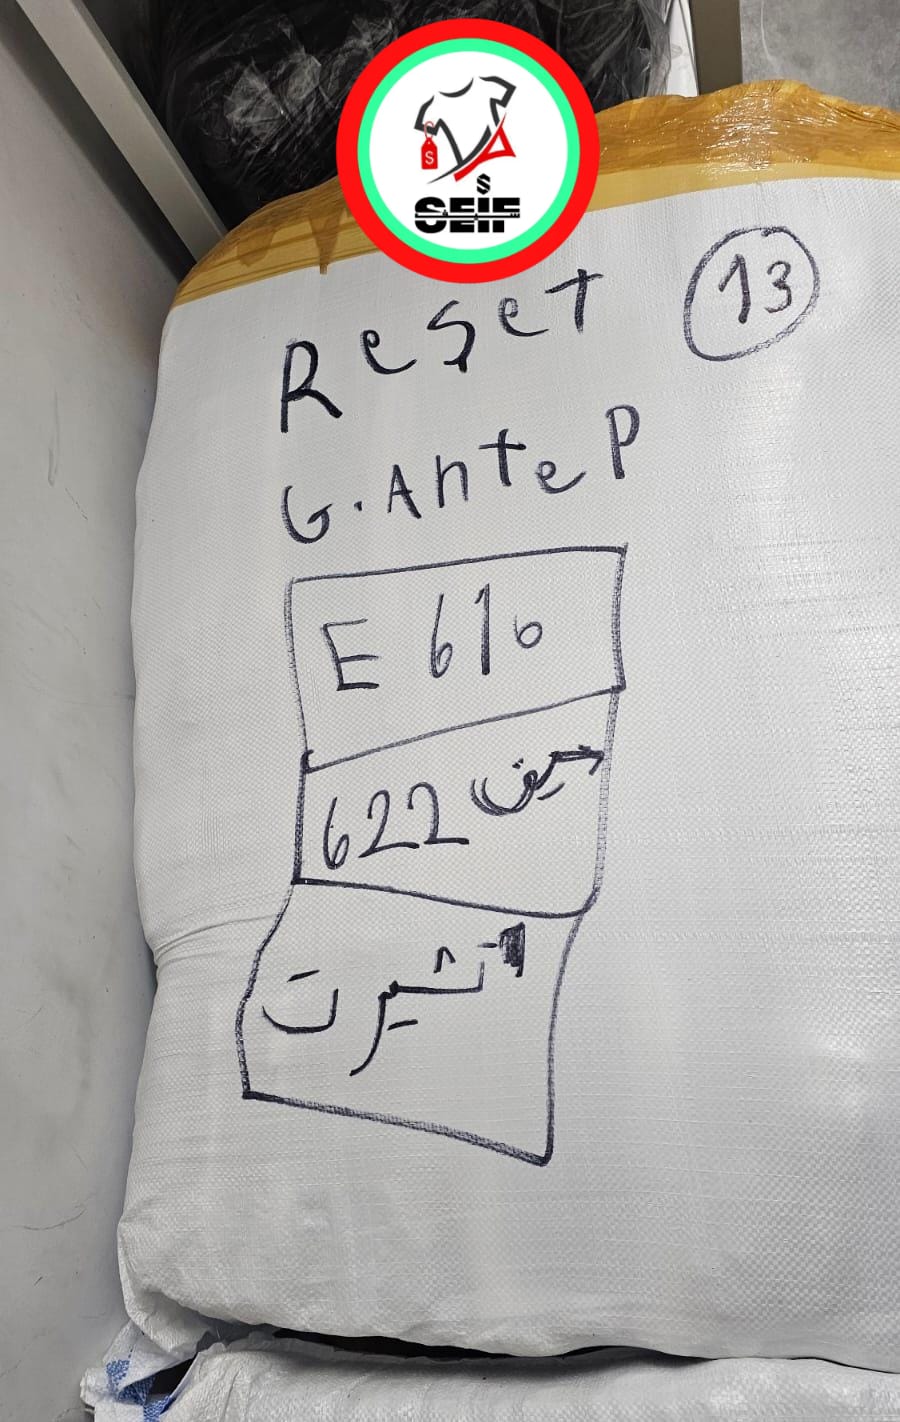 $
$
SEIF
Reset
13
G.AnteP
E 616
622 صيفي
تشيرت